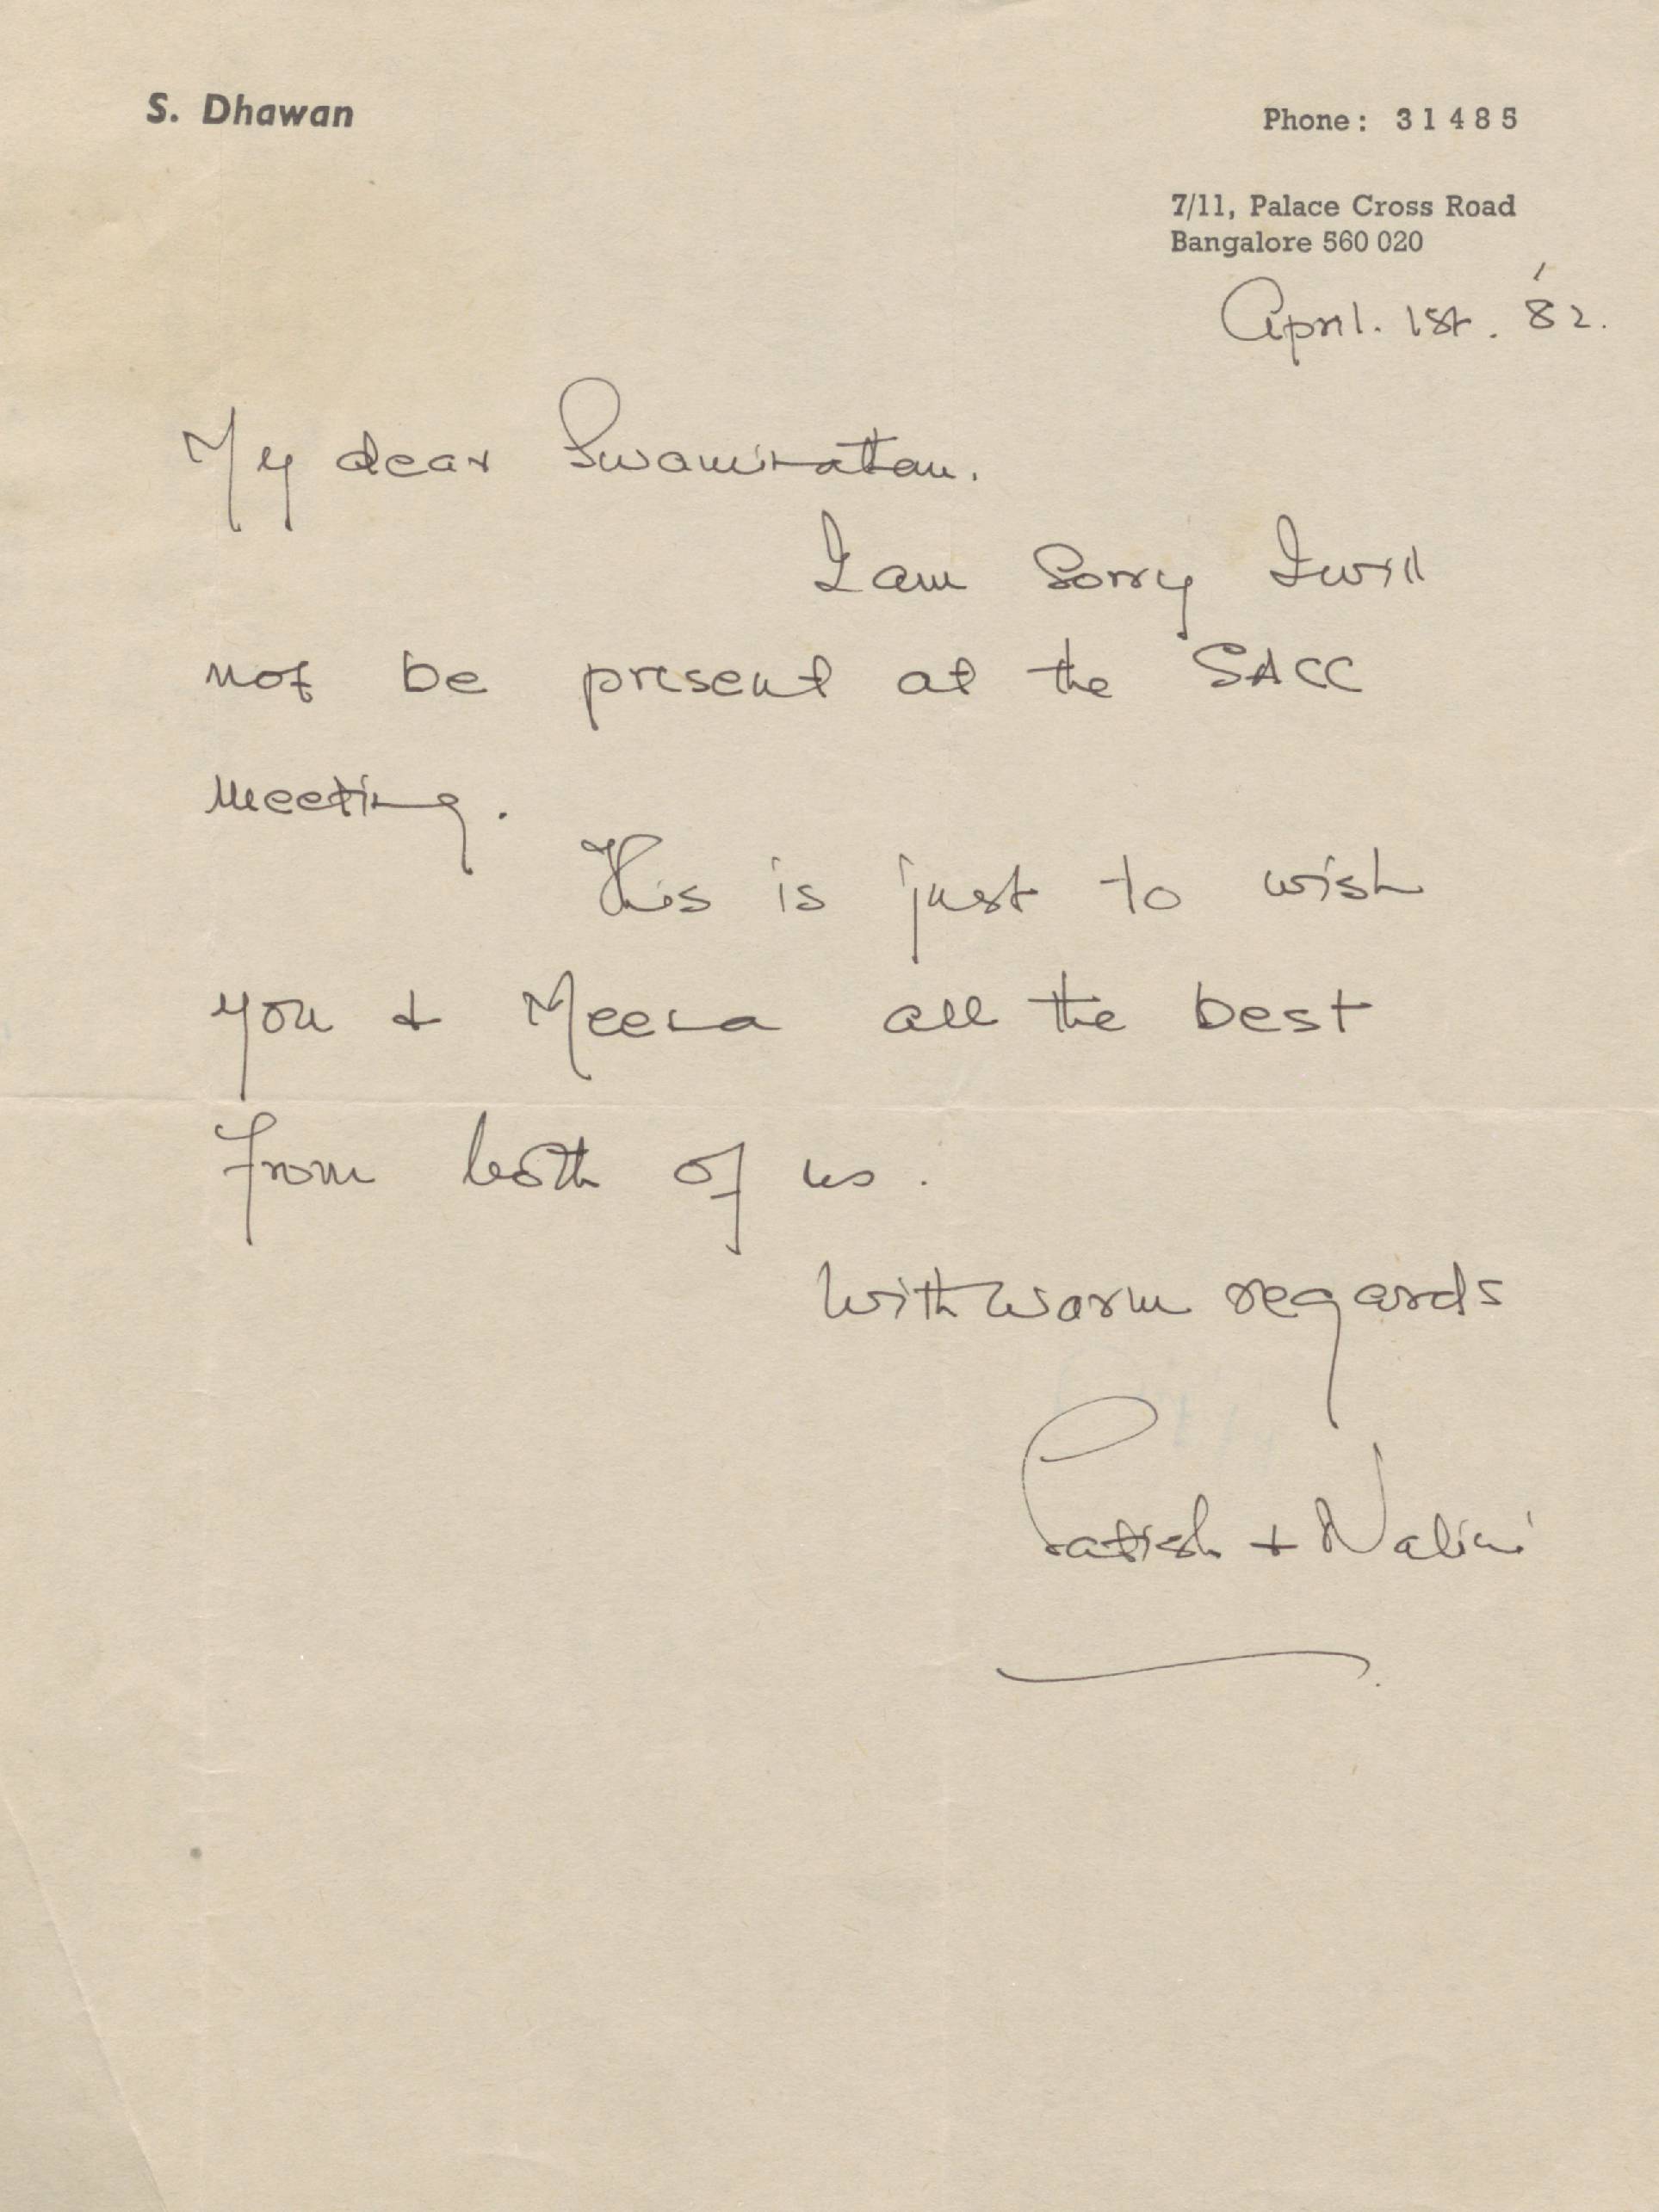 S. Dhawan
Phone: 31485
7/11, Palace Cross Road
Bangalore 560 020
April. 1st. '82.
My dear Swaminathan.
I am Sorry I will
not be present at the SACC
Meeting.
This is just to wish
you & Meena all the best
from both of us.
With warm regards
Satish + Nalini